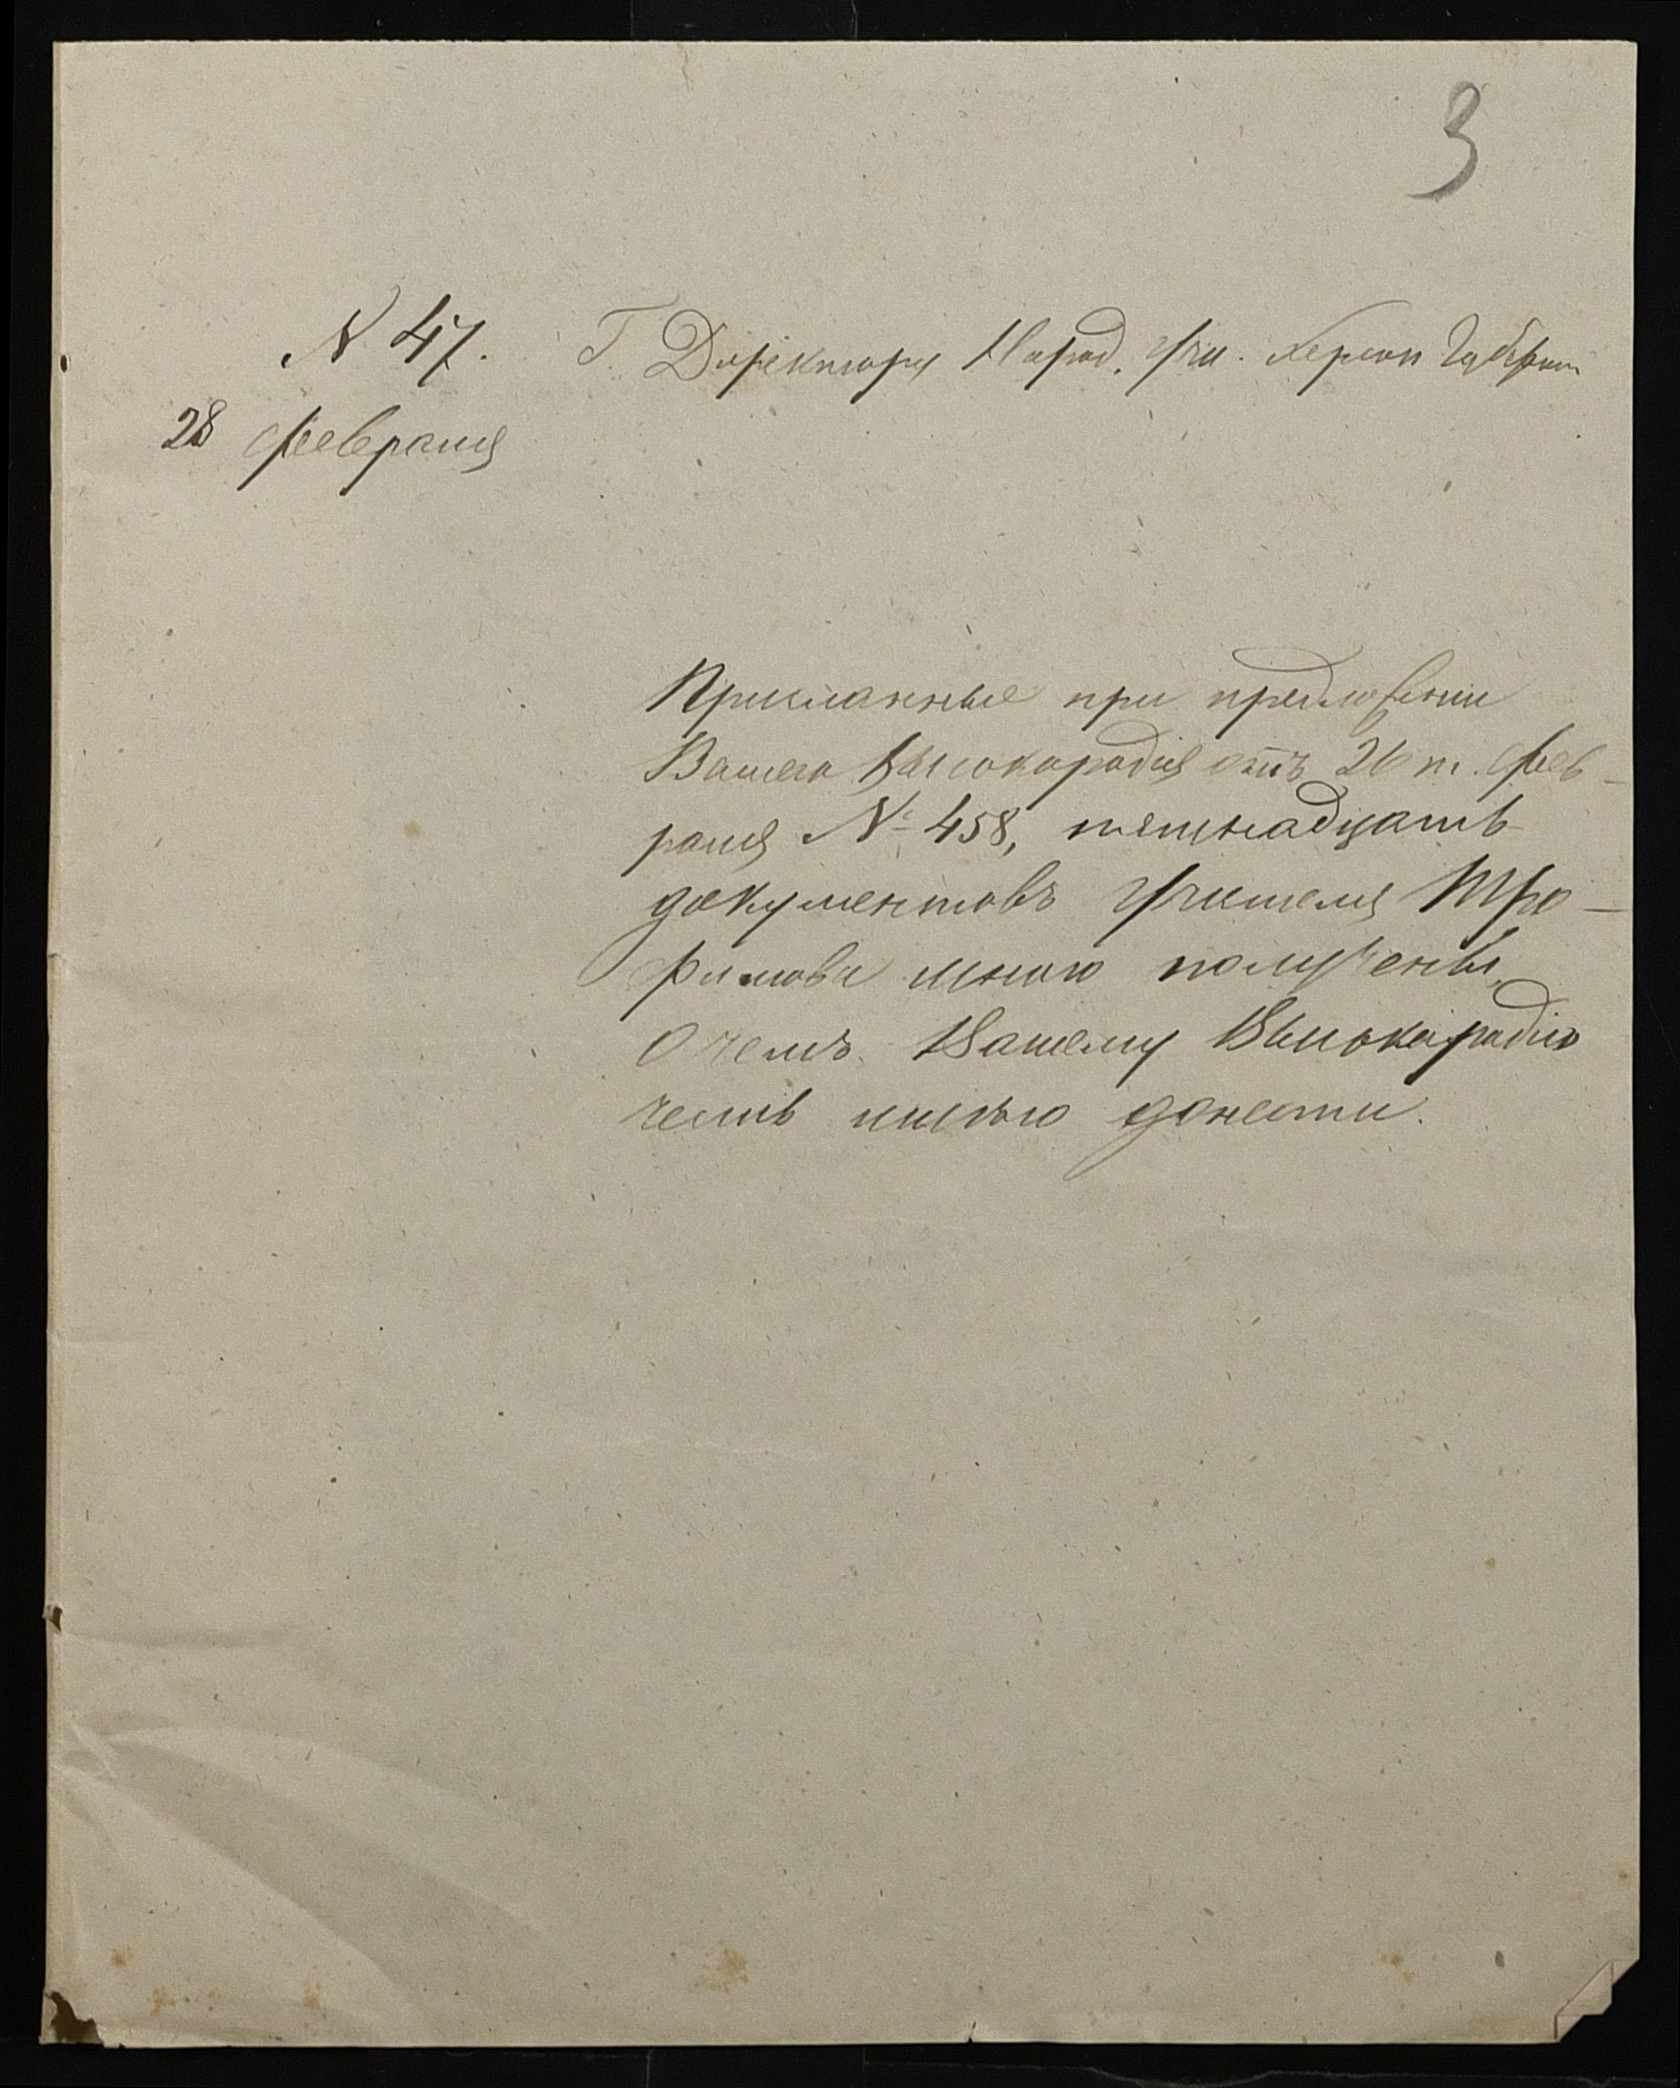 3
N 47.
Г. Директору Народ. Учи. Херсон Губерн
28 февраля
Присланные при предложении
Вашего Высокородія отъ 26 т. Фев-
раля № 458, пятнадцать
документовъ Учителя Тро-
фимова мною получены,
о чемъ Вашему Высокородію
честь имѣю донести.